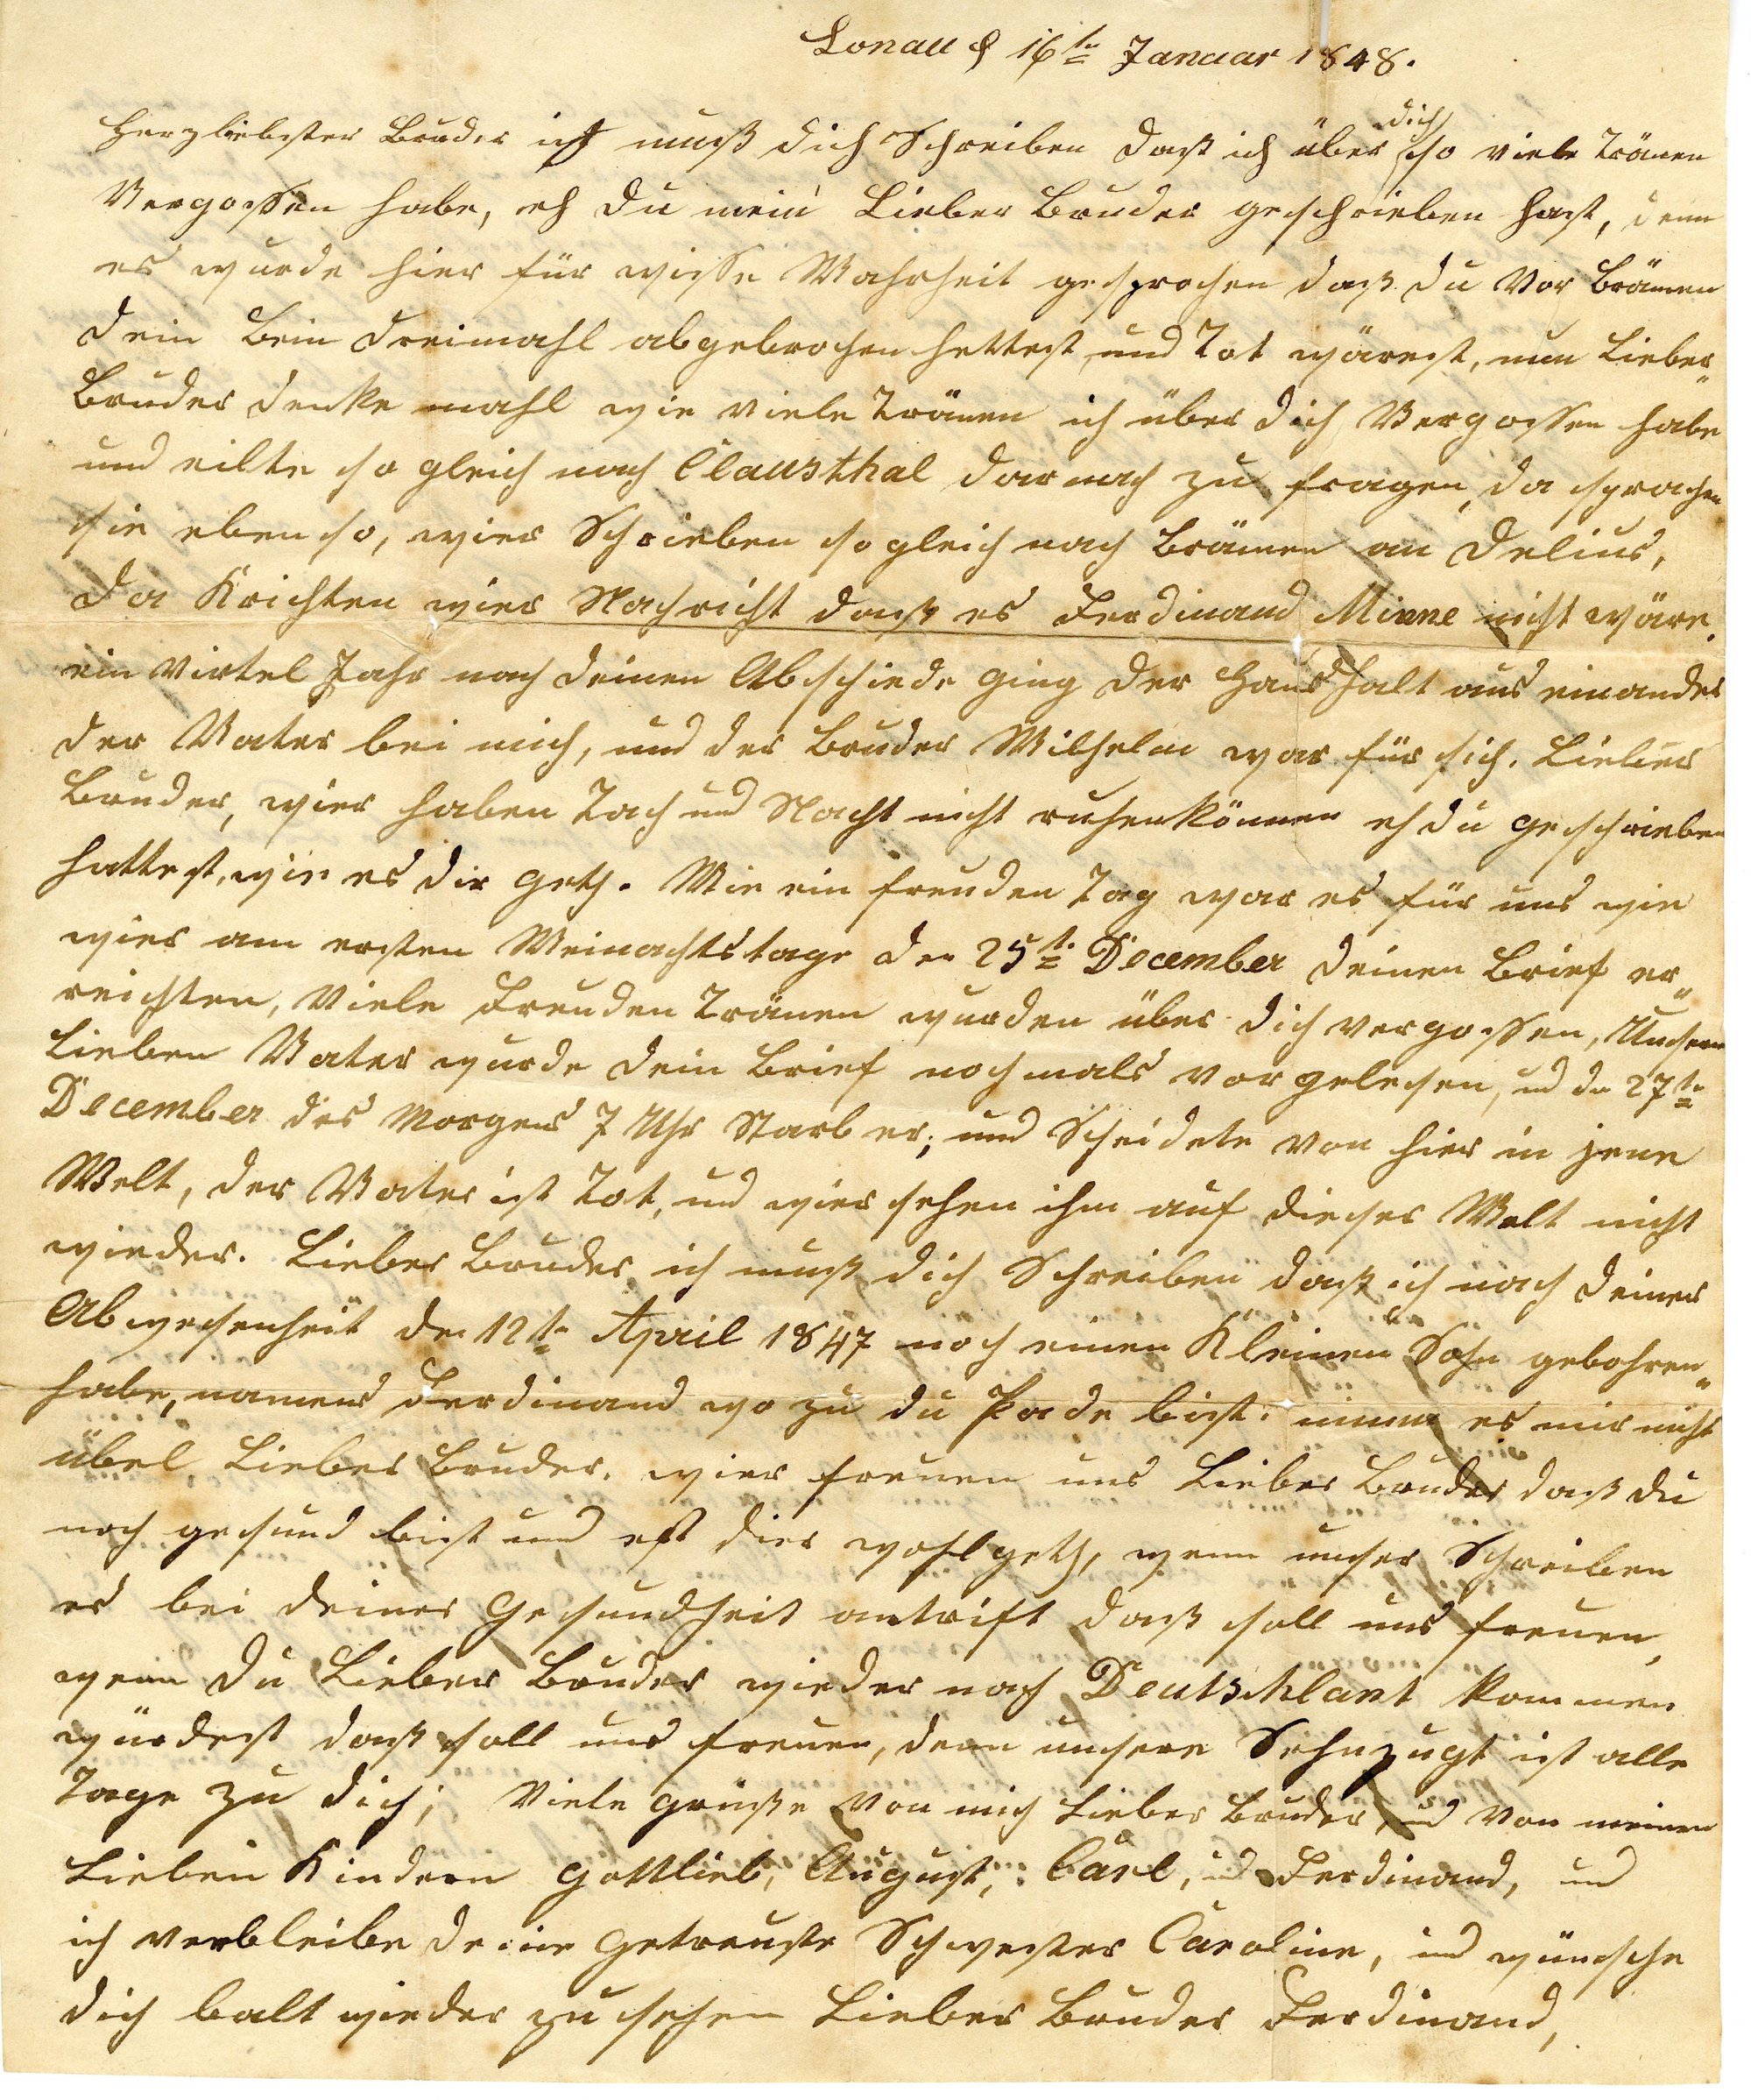 Lonau d 16te Januar 1848.
Herzliebster Bruder ich muß dich Schreiben daß ich über dich so viele Tränen
Vergossen habe, eh du mein Lieber Bruder geschrieben hast, denn
es wurde hier für wisse Wahrheit gesprochen daß du Vor Brämen
dein Bein dreimahl abgebrochen hettest und Tot wärest, nun Lieber„
Bruder denke mahl wie viele Tränen ich über dich Vergossen habe
und eilte so gleich nach Clausthal darnach zu fragen, da sprachen
sie ebenso, wier Schrieben so gleich nach Brämen an Delius,
da Krichten wier Nachricht daß es Ferdinand Minne nicht wäre.
ein virtel Jahr nach deinen Abschiede ging der Haushalt aus einander
der Vater bei mich, und der Bruder Wilhelm war für sich. Lieber
Bruder, wier haben Tach und Nacht nicht ruhen können eh du geschrieben
hattest, wie es dir geth. Wie ein freuden Tag war es für uns wie
wier am ersten Weinachtstage den 25te December deinen Brief er„
reichten, Viele Freuden Tränen wurden über dich vergossen, Unsern
Lieben Vater wurde dein Brief nochmals vorgelesen, und den 27te
December des Morgens 7 Uhr Starb er; und Scheidete von hier in jene
Welt, der Vater ist Tot, und wier sehen ihm auf dieser Welt nicht
wieder. Lieber Bruder ich muß dich Schreiben daß ich nach deiner
Abwesenheit den 12te April 1847 noch einen Kleinen Sohn gebohren„
habe, namens Ferdinand wo zu du Pade bist. nimm es mir nicht
übel Lieber Bruder. wier freuen uns Lieber Bruder daß du
noch gesund bist und est dier wohl geth, wenn unser Schreiben
es bei deiner Gesundheit antrift daß soll uns freuen,
wenn du Lieber Bruder wieder nach Deutschlant kommen
würdest daß soll uns freuen, denn unsere Sehnzugt ist alle
Tage zu dich; Viele grüße von mich Lieber Bruder, und Von meinen
Lieben Kindern Gottlieb, August, Carl, und Ferdinand, und
ich verbleibe deine getreuste Schwester Caroline, und wünsche
dich balt wieder zu sehen Lieber Bruder Ferdinand,